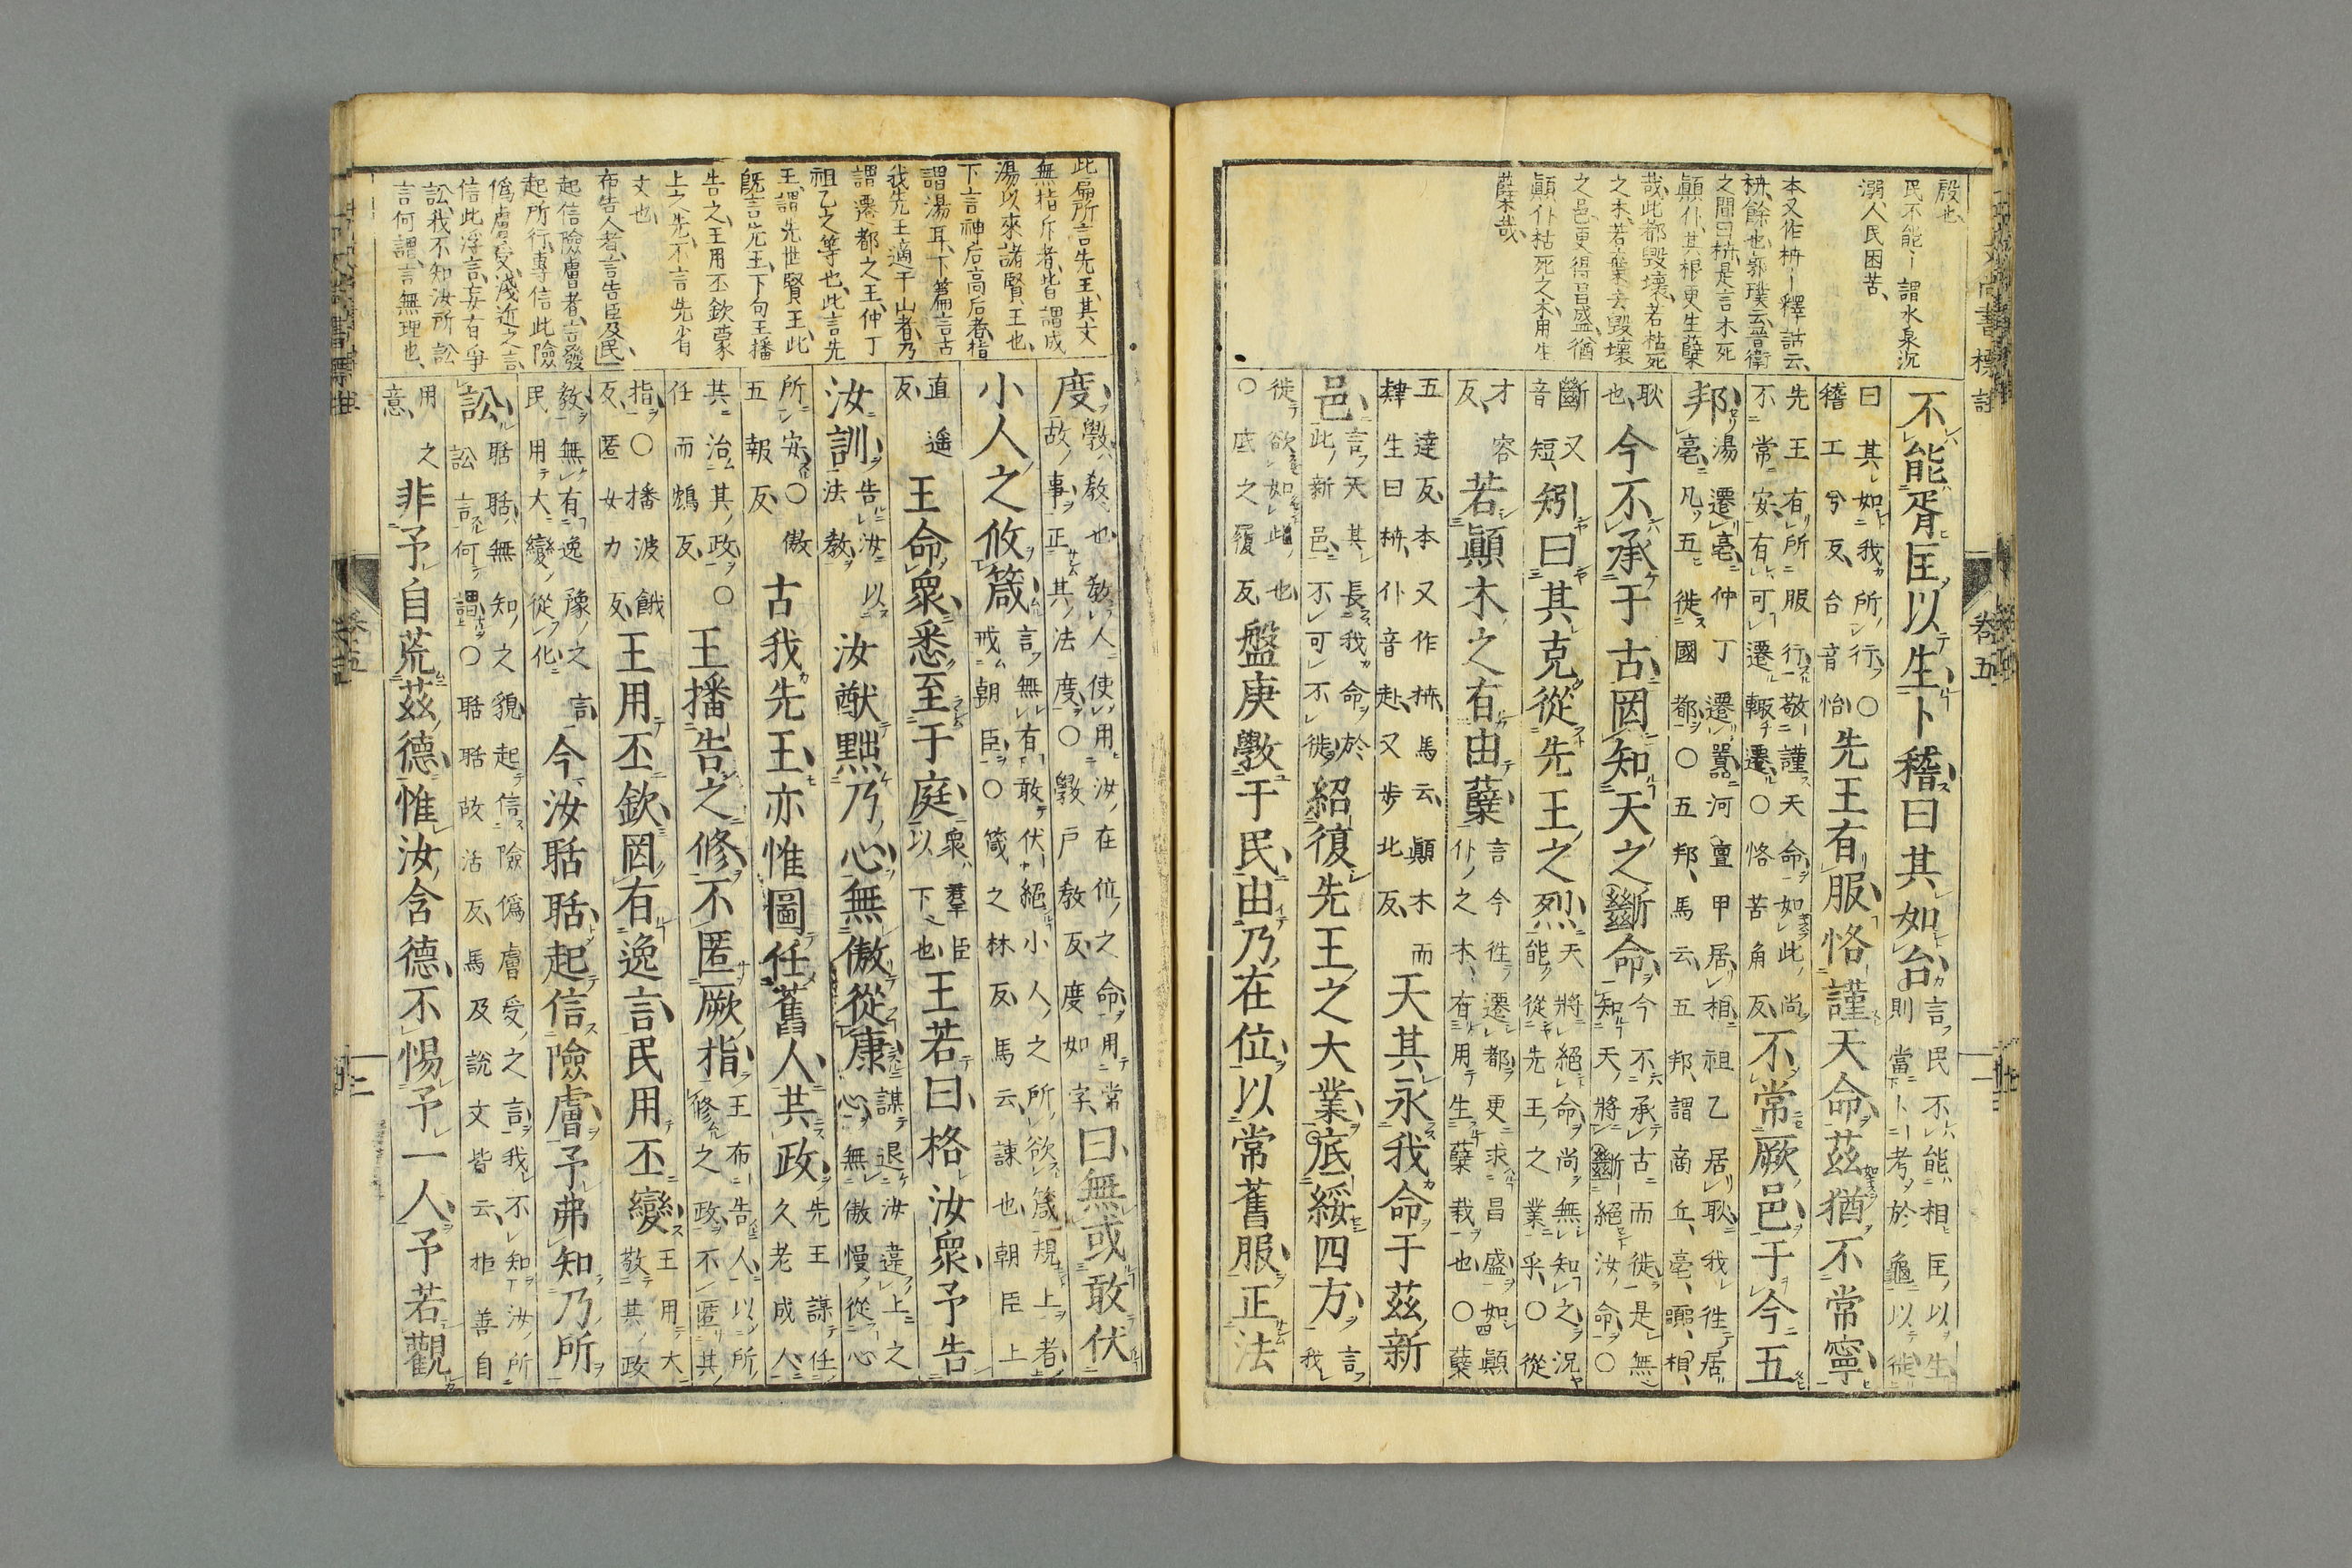 大尚書標註 卷五
殷也、
民不能ー謂水泉沉
溺人民困苦、
本又作枿ー釋詁云、
枿、餘也、郭璞云、晉衛
之間曰枿、是言木死
顛仆其根更生蘖
哉、此都毀壞若枯死
之木、若棄去毀壞
之邑更得昌盛、猶
顛仆枯死之木用生
蘖哉、
不能胥匡以生卜稽曰其如台
言民不能相匡以生
則當卜考於龜以徙
曰其如我所行○
稽工兮反台音怡
先王有服恪謹天命茲猶不常寧
先王有所服行敬謹天命如此尚
不常安有可遷輒遷○恪苦角反
不常厥邑于今五
邦
湯遷亳仲丁遷囂河亶甲居相祖乙居耿我往居
亳凡五徙國都○五邦馬云五邦謂商丘亳囂相
耿也
今不承于古罔知天之斷命
今不承古而徙是無
知天將斷絕汝命○
斷又
音短
矧曰其克從先王之烈
天將絕命尚無知之況
能從先王之業乎○從
才容
反
若顛木之有由蘖
言今往遷都更求昌盛如顛
仆之木有用生蘖栽也○蘖
五達反本又作枿馬云顛木而
肄生曰枿仆音赴又步北反
天其永我命于茲新
邑
言天其長我命於
此新邑不可不徙
紹復先王之大業底綏四方
言
我
徙欲如此也
○底之履反
盤庚斆于民由乃在位以常舊服正法
此扁所言先王其文
無指斥者皆謂成
湯以來諸賢王也
下言神后高后者指
謂湯耳、下篇言古
我先王適于山者乃
謂遷都之王、仲丁
祖乙之等也、此言先
王、謂先世賢王、此
既言先王、下句王播
告之、王用丕欽蒙
上之先、不言先省
文也、
布告人者、言告臣及民
起信險膚者、言發
起所行專信此險
僞膚受淺近之言、
信此浮言妄有爭
訟、我不知汝所訟
言何謂、言無理也、
度
斆教也教人使用汝在位之命用常
故事正其法度○斆戶教反度如字
曰無或敢伏
小人之攸箴
言無有敢伏絕小人之所欲箴規上者
戒朝臣○箴之林反馬云諫也朝臣上
直遥
反
王命眾悉至于庭
眾羣臣
以下也
王若曰格汝眾予告
汝訓
告汝以
法教
汝猷黜乃心無傲從康
謀退汝違上之
心無傲慢從心
所安○傲
五報反
古我先王亦惟圖任舊人共政
先王謀任
久老成人
共治其政○
任而鴆反
王播告之修不匿厥指
王布告人以所
修之政不匿其
指○播波餓
反匿女力反
王用丕欽罔有逸言民用丕變
王用大
敬其政
教無有逸豫之言
民用大變從化
今汝聒聒起信險膚予弗知乃所
訟
聒聒無知之貌起信險僞膚受之言我不知汝所
訟言何謂○聒聒故活反馬及說文皆云拒善自
用之
意
非予自荒茲德惟汝含德不惕予一人予若觀